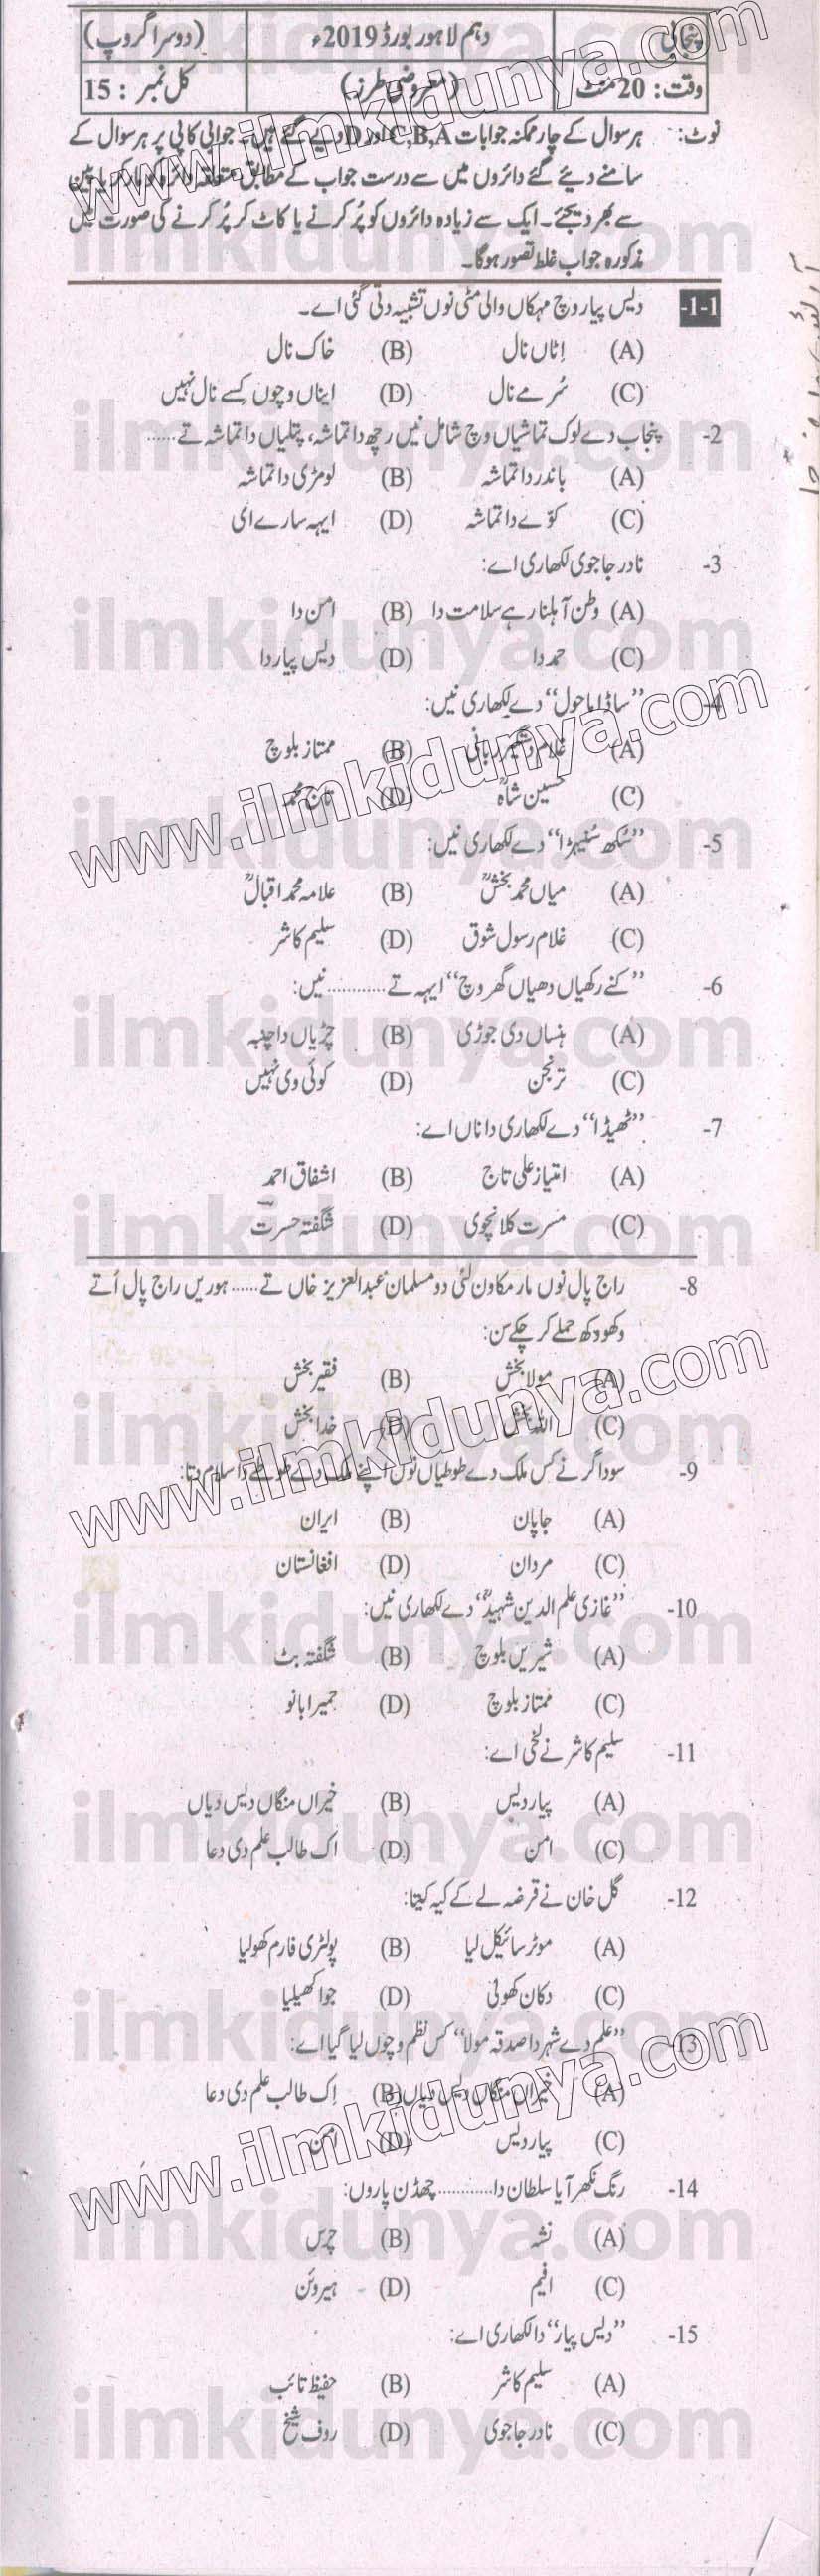 پنجابی
دہم لاہور بورڈ 2019ء
(دوسرا گروپ)
وقت: 20 منٹ
(معروضی طرز)
کل نمبر: 15
نوٹ: ہر سوال کے چار ممکنہ جوابات C,B,A اور D دیے گئے ہیں۔ جوابی کاپی پر ہر سوال کے
سامنے دیئے گئے دائروں میں سے درست جواب کے مطابق متعلقہ دائرہ کو مارکر یا پین
سے بھر دیجئے۔ ایک سے زیادہ دائروں کو پُر کرنے یا کاٹ کر پُر کرنے کی صورت میں
مذکورہ جواب غلط تصور ہوگا۔
1-1- دیس پیار وچ مہکاں والی مٹی نوں تشبیہ دتی گئی اے۔
(A) اِٹاں نال (B) خاک نال
(C) سُرمے نال (D) ایناں وچوں کسے نال نہیں
2- پنجاب دے لوک تماشیاں وچ شامل نیں رچھ دا تماشہ، پتلیاں دا تماشہ تے ......
(A) باندر دا تماشہ (B) لومڑی دا تماشہ
(C) کوّے دا تماشہ (D) ایہہ سارے ای
3- نادر جاجوی لکھاری اے:
(A) وطن آہلنا رہے سلامت دا (B) امن دا
(C) حمد دا (D) دیس پیار دا
4- ”ساڈا ماحول“ دے لکھاری نیں:
(A) غلام دستگیر ربانی (B) ممتاز بلوچ
(C) حسین شاہ (D) تاج محمد
5- ”سُکھ سُنیہڑا“ دے لکھاری نیں:
(A) میاں محمد بخشؒ (B) علامہ محمد اقبالؒ
(C) غلام رسول شوق (D) سلیم کاشر
6- ”کنے رکھیاں دھیاں گھر وچ“ ایہہ تے ............ نیں:
(A) ہنساں دی جوڑی (B) چڑیاں دا چنبہ
(C) ترنجن (D) کوئی وی نہیں
7- ”ٹھیڈا“ دے لکھاری دا ناں اے:
(A) امتیاز علی تاج (B) اشفاق احمد
(C) مسرت کلانچوی (D) شگفتہ حسرت
8- راج پال نوں مار مکاون لئی دو مسلمان عبدالعزیز خاں تے ...... ہوریں راج پال اُتے
وکھو وکھ حملے کر چکے سن:
(A) مولا بخش (B) فقیر بخش
(C) اللہ بخش (D) خدا بخش
9- سوداگر نے کس ملک دے طوطیاں نوں اپنے ملک دے طوطے دا سلام دتا:
(A) جاپان (B) ایران
(C) مردان (D) افغانستان
10- ”غازی علم الدین شہیدؒ“ دے لکھاری نیں:
(A) شیریں بلوچ (B) شگفتہ بٹ
(C) ممتاز بلوچ (D) حمیرا بانو
11- سلیم کاشر نے لخی اے:
(A) پیار دیس (B) خیراں منگاں دیس دیاں
(C) امن (D) اک طالب علم دی دعا
12- گل خان نے قرضہ لے کے کیہ کیتا:
(A) موٹر سائیکل لیا (B) پولٹری فارم کھولیا
(C) دکان کھولی (D) جوا کھیلیا
13- ”علم دے شہر دا صدقہ مولا“ کس نظم وچوں لیا گیا اے:
(A) خیراں منگاں دیس دیاں (B) اِک طالب علم دی دعا
(C) پیار دیس (D) امن
14- رنگ نکھر آیا سلطان دا............ چھڈن پاروں:
(A) نشہ (B) چرس
(C) افیم (D) ہیروئن
15- ”دیس پیار“ دا لکھاری اے:
(A) سلیم کاشر (B) حفیظ تائب
(C) نادر جاجوی (D) روف شیخ
ilmkidunya.com
www.ilmkidunya.com